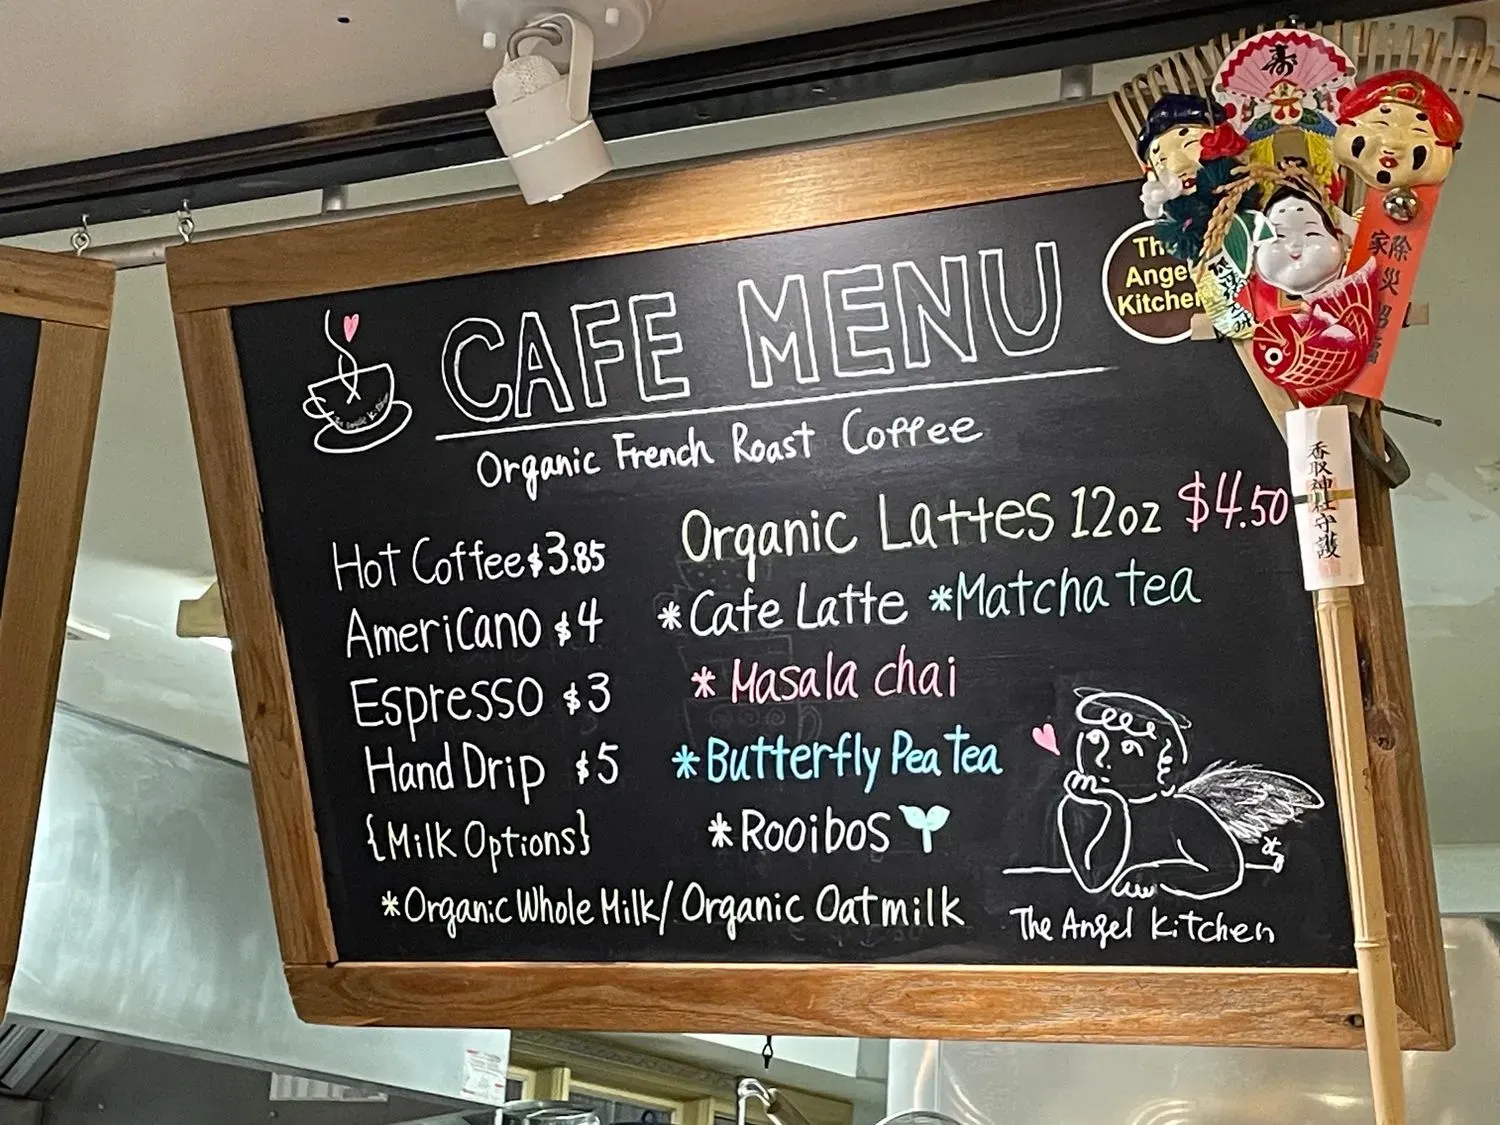 CAFE MENU
Organic French Roast Coffee
Hot Coffee $3.85
Americano $4
Espresso $3
Hand Drip $5
{Milk Options}
*Organic Whole Milk/Organic Oatmilk
Organic Lattes 12oz $4.50
*Cafe Latte *Matcha tea
*Masala chai
*Butterfly Pea Tea
*Rooibos
The Angel Kitchen
The
Angel
Kitchen
寿
除災招福
家
香取神社守護